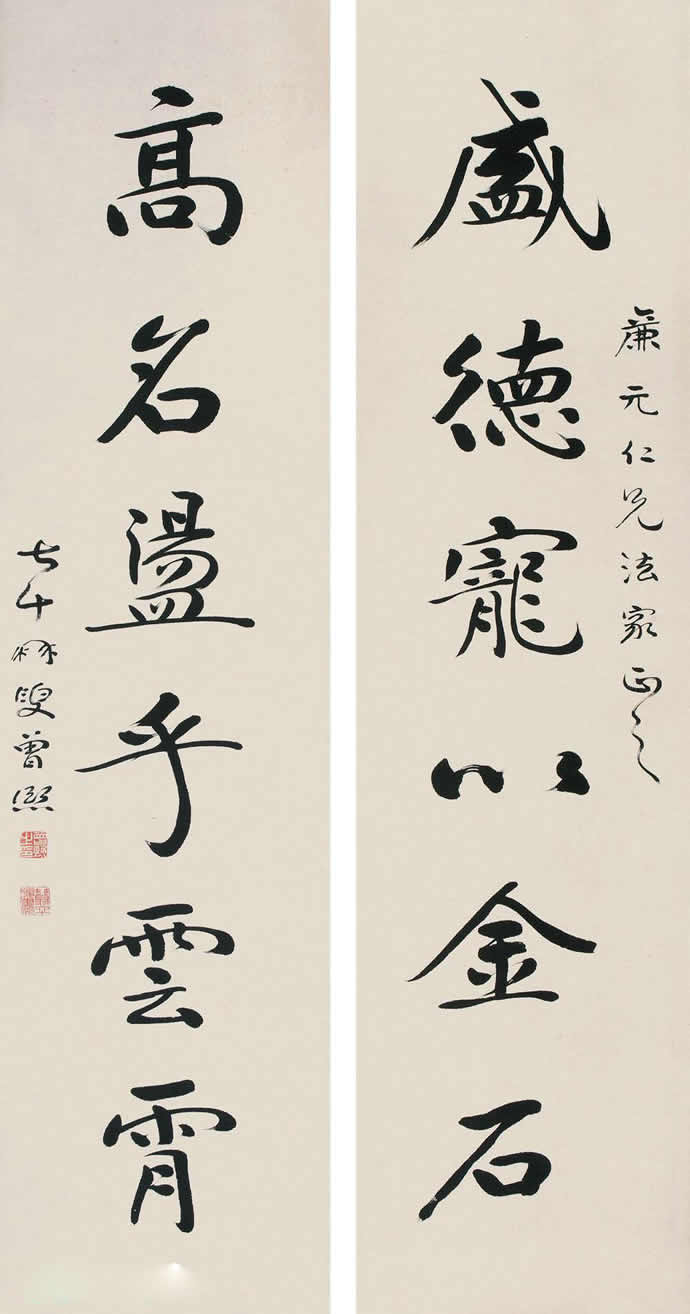 盛德寵以金石
廉元仁兄法家正之
高名盪乎雲霄
七十叟曾熙